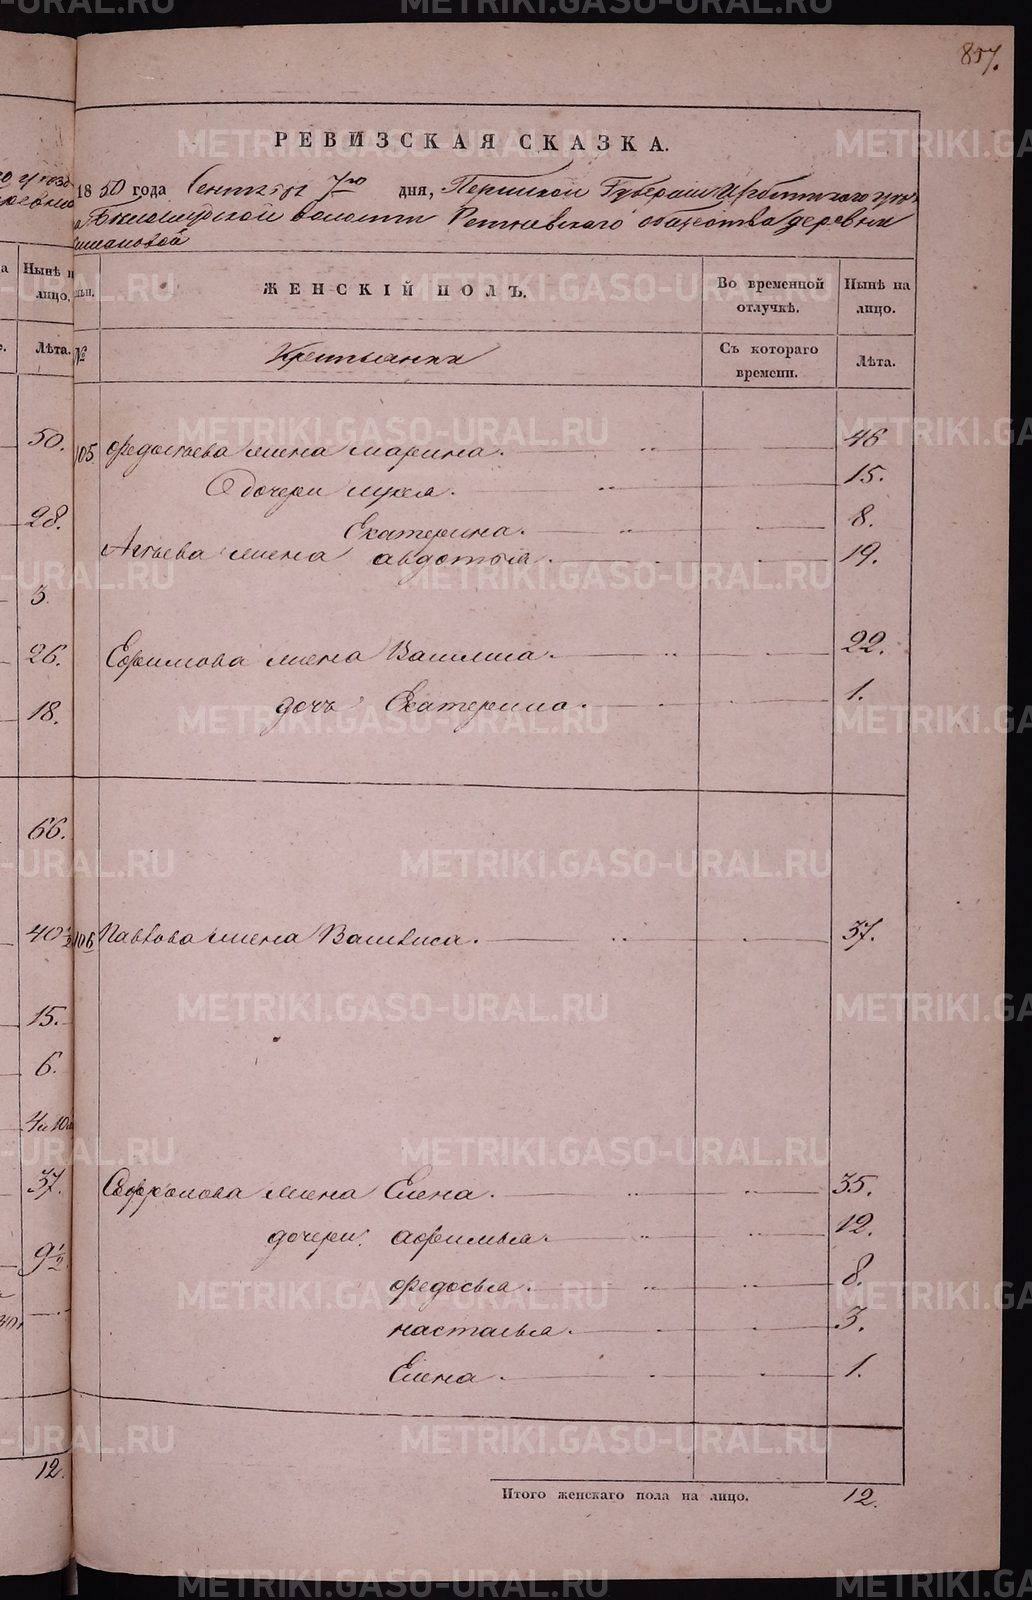 857.
РЕВИЗСКАЯ СКАЗКА.
1850 года Сентября 7го дня, Пермской Губернии Ирбитского уез-
волости общества деревни
Нынѣ на лицо.
ЖЕНСКІЙ ПОЛЪ.
Во временной отлучкѣ.
Нынѣ на лицо.
Лѣта.
№
Крестьянки
Съ котораго времени.
Лѣта.
50.
105 Федотьева жена Марина. 46
2 дочери 15.
28.
Екатерина. 8.
жена Авдотья. 19.
3.
26. Ефимова жена Василиса. 22.
18. дочь Екатерина. 1.
66.
40 1/2
106 Павлова жена Василиса. 37.
15.
6.
37. жена Елена. 35.
дочери Афимья. 12.
9 1/2
Федосья. 8.
Настасья. 3.
Елена. 1.
12.
Итого женскаго пола на лицо. 12.
METRIKI.GASO-URAL.RU